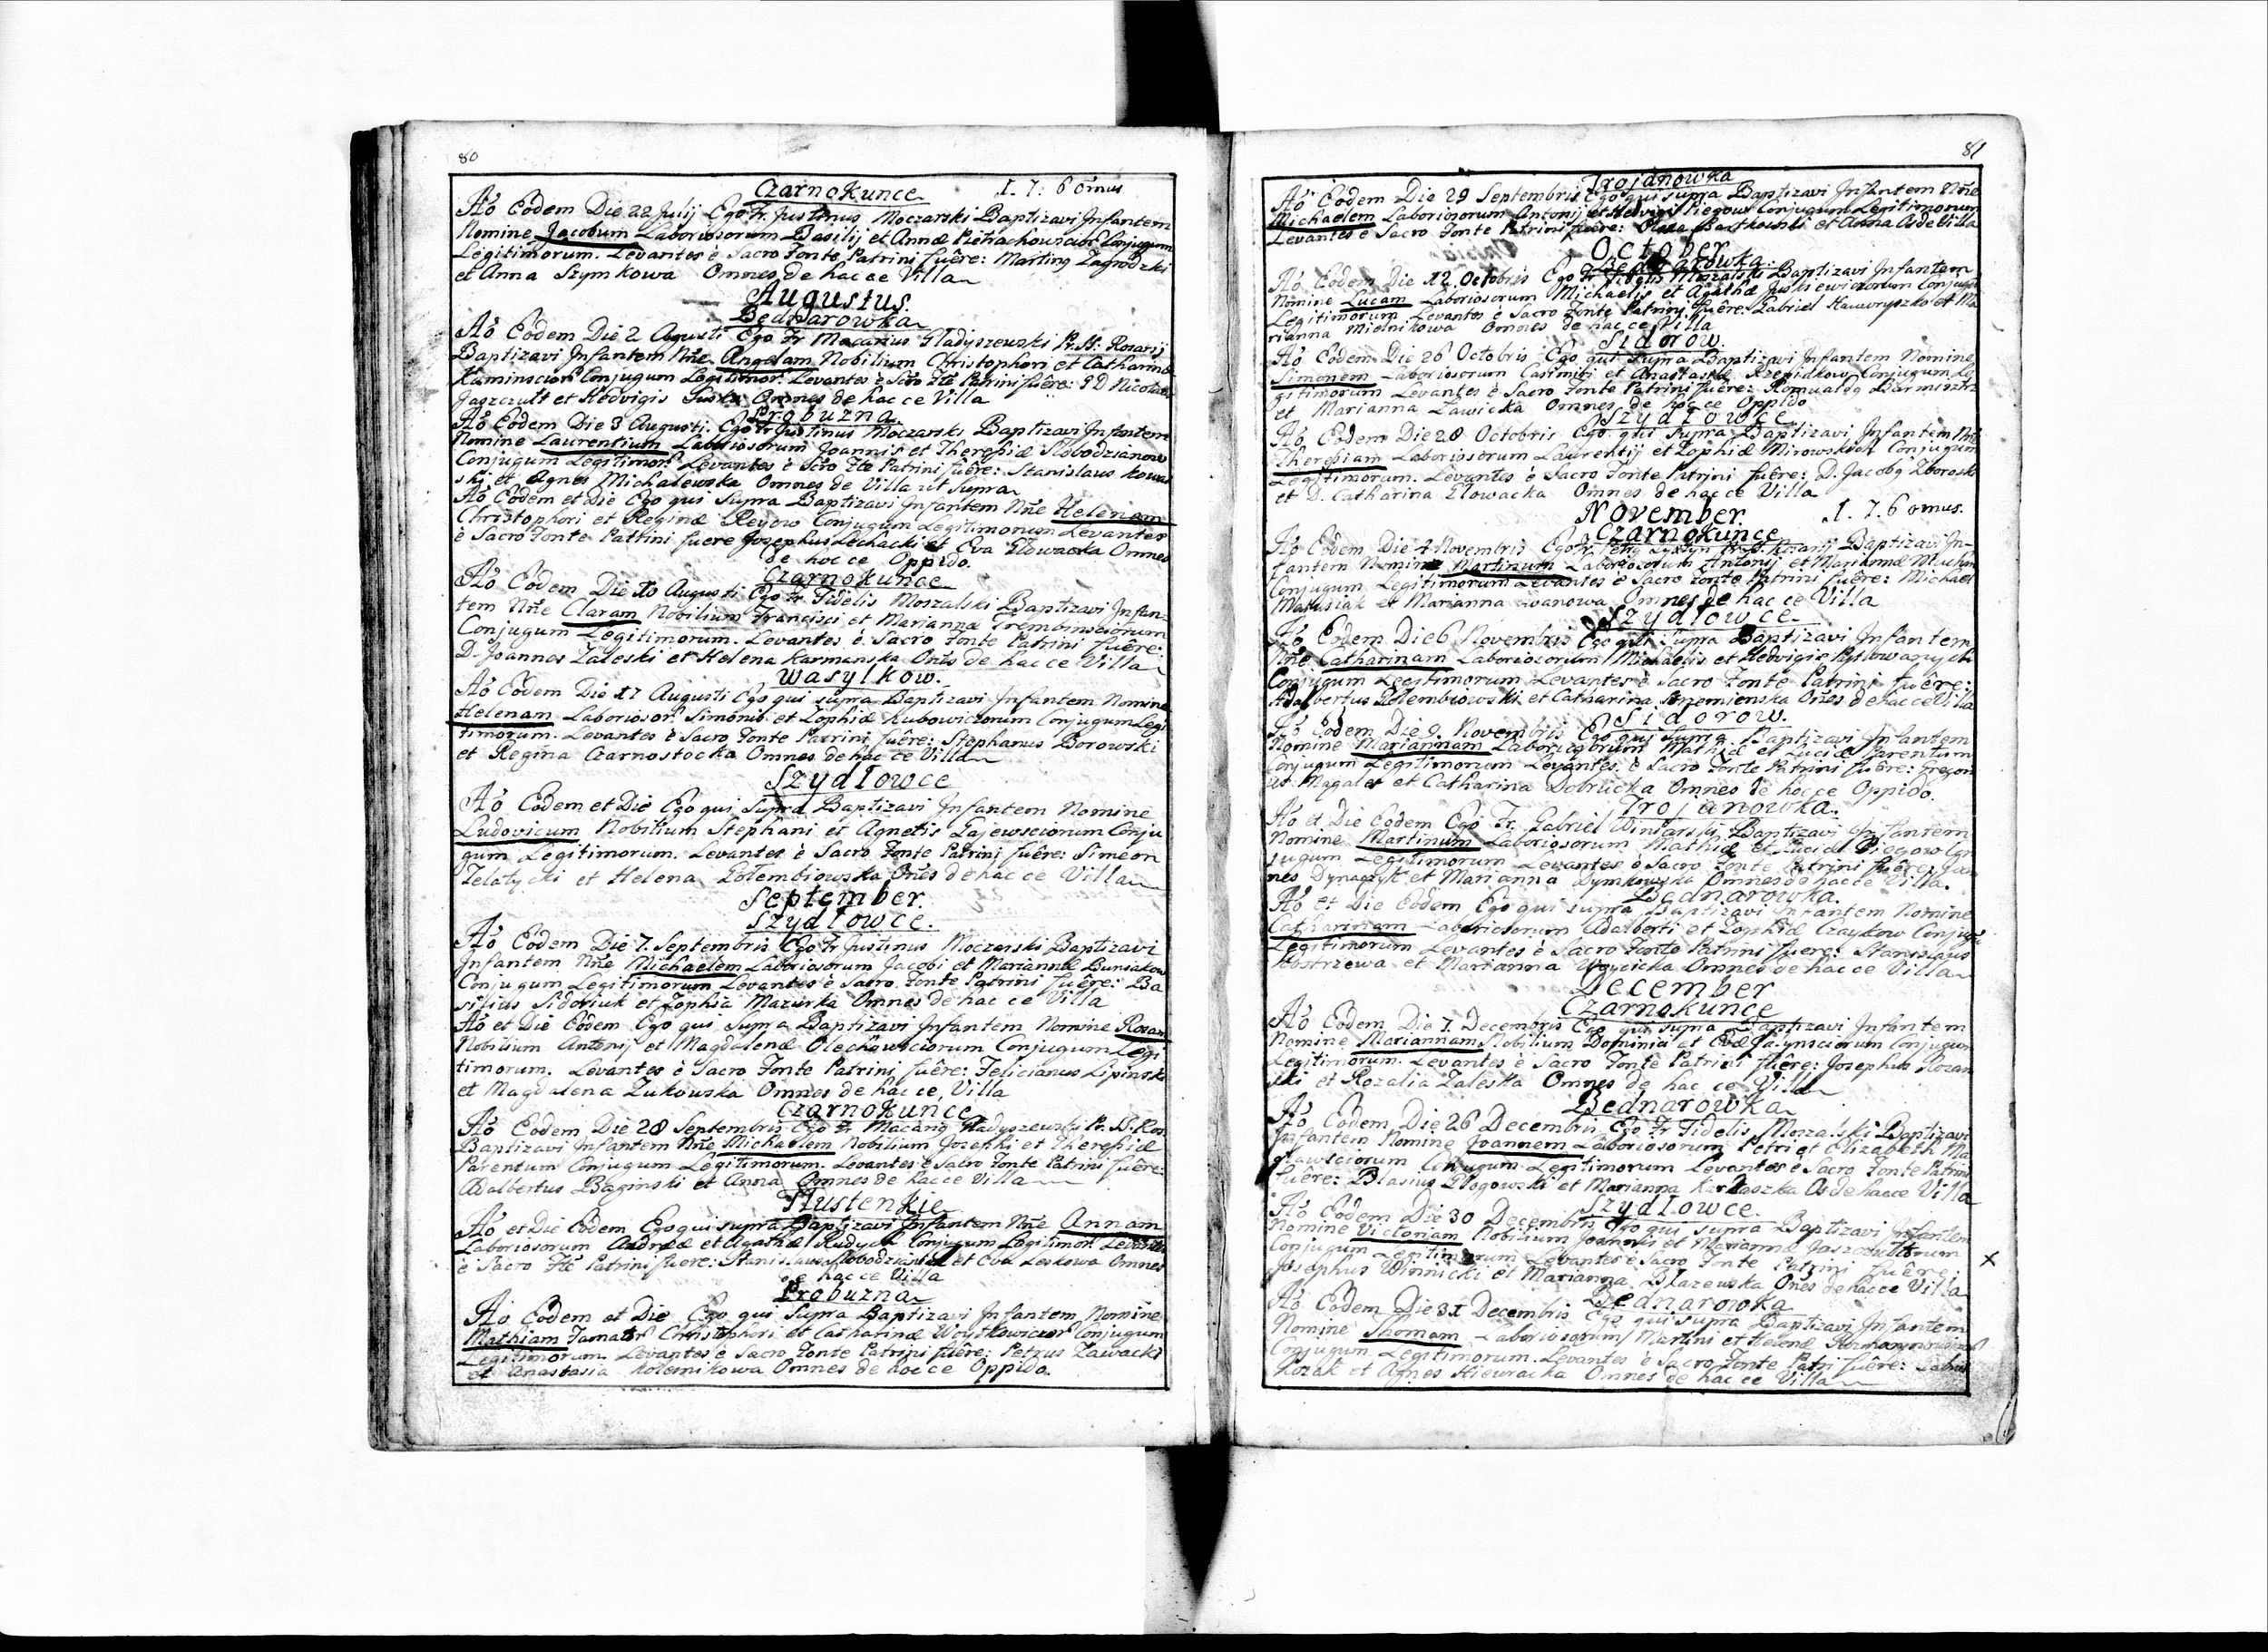 80
Czarnokunce I. 7: 6 omus
Ao Eodem Die 22 Julij Ego Fr. Justinus Moczarski Baptizavi Infantem
Nomine Jacobum Laboriosorum Basilij et Annæ Conjugum
Legitimorum. Levantes è Sacro Fonte Patrini fuêre: Marting Zagrodzki
et Anna Szymkowa Omnes de hac ce Villa
Augustus.
Bednarowka
Ao Eodem Die 2 Agusti Ego Fr Macarius Gladyszewski Pr. SS. Rosarij
Baptizavi Infantem Nñe Angelam Nobilium Christophori et Catharinæ
Kaminscior Conjugum Legitimor. Levantes è Sčro Fte Patrini fuêre: GD Nicolaus
Jaszczult et Hedvigis Omnes de hac ce Villa
Probuzna
Ao Eodem Die 3 Augusti. Ego Fr Justinus Moczarski Baptizavi Infantem
Nomine Laurentium Laboriosorum Joannis et Theresiæ Slobodzianow
Conjugum Legitimor. Levantes è Sčro Fte Patrini fuêre: Stanislaus Kowal
ski et Agnes Michalewska Omnes de Villa ut Supra
Ao Eodem et Die Ego qui Supra Baptizavi Infantem Nñe Helenam
Christophori et Reginæ Reyow Conjugum Legitimorum Levantes
è Sacro Fonte Patrini fuere Josephus Lechacki et Eva Głowacka Omnes
de hoc ce Oppido.
Czarnokunce
Ao Eodem Die 10 Augusti Ego Fr Fidelis Moszalski Baptizavi Infan-
tem Nñe Claram Nobilium Francisci et Mariannæ Trembinsciorum
Conjugum Legitimorum. Levantes è Sacro Fonte Patrini fuêre:
D. Joannes Zaleski et Helena Karmanska Oñes de hac ce Villa
Wasylkow.
Ao Eodem Die 17 Augusti Ego qui supra Baptizavi Infantem Nomine
Helenam Laborioser. Simonis et Zophiæ Kubowiczorum Conjugum Legi
timorum. Levantes è Sacro Fonte Patrini fuêre: Stephanus Borowski
et Regina Czarnostocka Omnes de hac ce Villa
Szydlowce
Ao Eodem et Die Ego qui Supra Baptizavi Infantem Nomine
Ludovicum Nobilium Stephani et Agnetis Gajewsciorum Conju
gum Legitimorum. Levantes è Sacro Fonte Patrini fuêre: Simeon
Zelatycki et Helena Golembiowska Oñes de hac ce Villa
September.
Szydlowce.
Ao Eodem Die 7. Septembris Ego Fr Justinus Moczarski Baptizavi
Infantem Nñe Michaelem Laboriosorum Jacobi et Mariannæ Buniakow
Conjugum Legitimorum Levantes è Sacro Fonte Patrini fuêre: Ba
silius Sidoriuk et Zophia Mazurka Omnes de hac ce Villa
Ao et Die Eodem Ego qui Supra Baptizavi Infantem Nomine Rosam
Nobilium Antonij et Magdalenæ Olechowsciorum Conjugum Legi
timorum. Levantes è Sacro Fonte Patrini fuêre: Felicianus Lipinski
et Magdalena Zukowska Omnes de hac ce, Villa
Czarnokunce
Ao Eodem Die 28 Septembris Ego Fr Macarig Gladyszewski Pr. S. Ros
Baptizavi Infantem Nñe Michaelem Nobilium Josephi et Theresiæ
Parentum Conjugum Legitimorum. Levantes è Sacro Fonte Patrini fuêre:
Adalbertus Baginski et Anna Omnes de hac ce Villa
Hustenkie
Ao et Die Eodem Ego qui supra Baptizavi Infantem Nñe Annam
Laboriosorum Andreæ et Agathæ Rudych Conjugum Legitimor. Levantes
è Sacro Fte Patrini fuere: Stanislaus et Eva Leskowa Omnes
de hac ce Villa
Probuzna
Ao Eodem et Die Ego qui Supra Baptizavi Infantem Nomine
Mathiam Famator Christophori et Catharinæ Woytkowiczor Conjugum
Legitimorum. Levantes è Sacro Fonte Patrini fuêre: Petrus Zawacki
et Anastasia Kolesnikowa Omnes de hoc ce Oppido.
81
Trojanowka
Ao Eodem Die 29 Septembris Ego qui supra Baptizavi Infantem Nñe
Michaelem Laboriosorum Antonij et Hedvigis Piegow Conjugum Legitimorum
Levantes è Sacro Fonte Patrini fuêre: Bartkowski et Anna Os de Villa
October.
Bednarowka.
Ao Eodem Die 12 Octobris Ego Fr Fidelis Moszalski Baptizavi Infantem
Nomine Lucam Laboriosorum Michaelis et Agathæ Juskiewiczorum Conjugũ
Legitimorum Levantes è Sacro Fonte Patrini fuêre: Gabriel Hawryszko et Ma
rianna Mielnikowa Omnes de hac ce Villa
Sidorow.
Ao Eodem Die 26 Octobris Ego qui Supra Baptizavi Infantem Nomine
Simonem Laboriosorum Casimiri et Anastasiæ Conjugum Le
gitimorum Levantes è Sacro Fonte Patrini fuêre: Romualdg Burmistrz
et Marianna Zawicka Omnes de hoc ce Oppido
Szydlowce
Ao Eodem Die 28 Octobris Ego qui Supra Baptizavi Infantem Nñe
Theresiam Laboriosorum Laurentij et Zophiæ Mirowskich Conjugum
Legitimorum. Levantes è Sacro Fonte Patrini fuêre: D. Jacobg Zboroski
et D. Catharina Glowacka Omnes de hac ce Villa
November. I. 7. 6 omus.
Czarnokunce
Ao Eodem Die 4 Novembris Ego Fr. Rosarij Baptizavi In-
fantem Nomine Martinum Laboriosorum Antonij et Mariannæ
Conjugum Legitimorum Levantes è Sacro Fonte Patrini fuêre: Michael
Matusiak et Marianna Iwanowa Omnes de hac ce Villa
Szydlowce.
Ao Eodem Die 6 Novembris Ego qui Supra Baptizavi Infantem
Nñe Catharinam Laboriosorum Michaelis et Hedvigis
Conjugum Legitimorum Levantes è Sacro Fonte Patrini fuêre:
Adalbertus Golembiowski et Catharina Oñes de hac ce Villa
Sidorow.
Ao Eodem Die 9. Novembris Ego qui Supra Baptizavi Infantem
Nomine Mariannam Laboriosorum Mathiæ et Luciæ Parentum
Conjugum Legitimorum Levantes è Sacro Fonte Patrini fuêre: Gregori
us Magaler et Catharina Dobrucka Omnes de hoc ce Oppido.
Trojanowka.
Ao et Die Eodem Ego Fr. Gabriel Winiarski Baptizavi Infantem
Nomine Martinum Laboriosorum Mathiæ et Luciæ Piegow Con
jugum Legitimorum Levantes è Sacro Fonte Patrini fuêre: Joan
nes et Marianna Dymkowska Omnes de hac ce Villa.
Bednarowka.
Ao et Die Eodem Ego qui supra Baptizavi Infantem Nomine
Catharinam Laboriosorum Adalberti et Zophiæ Czaykow Conjugũ
Legitimorum Levantes è Sacro Fonte Patrini fuere: Stanislaus
Kostrzewa et Marianna Woycicka Omnes de hac ce Villa
December
Czarnokunce
Ao Eodem Die 7. Decembris Ego qui supra Baptizavi Infantem
Nomine Mariannam Nobilium Dominici et Evæ Conjugum
Legitimorum. Levantes è Sacro Fonte Patrini fuêre: Josephus Rozan
ski et Rozalia Zaleska Omnes de hac ce Villa
Bednarowka
Ao Eodem Die 26 Decembris Ego Fr Fidelis Moszalski Baptizavi
Infantem Nomine Joannem Laboriosorum Petri et Elizabeth Ma
Conjugum Legitimorum Levantes è Sacro Fonte Patrini
fuêre: Blasius Glogowski et Marianna Os de hac ce Villa
Szydlowce.
Ao Eodem Die 30 Decembris Ego qui supra Baptizavi Infantem
Nomine Victoriam Nobilium Joannis et Mariannæ Jaszczultorum
Conjugum Legitimorum Levantes è Sacro Fonte Patrini fuêre:
Josephus Winnicki et Marianna Blazewska Oñes de hac ce Villa
Bednarowka
Ao Eodem Die 31 Decembris Ego qui supra Baptizavi Infantem
Nomine Thomam Laboriosorum Martini et Helenæ
Conjugum Legitimorum. Levantes è Sacro Fonte Patri fuêre:
Kozak et Agnes Omnes de hac ce Villa